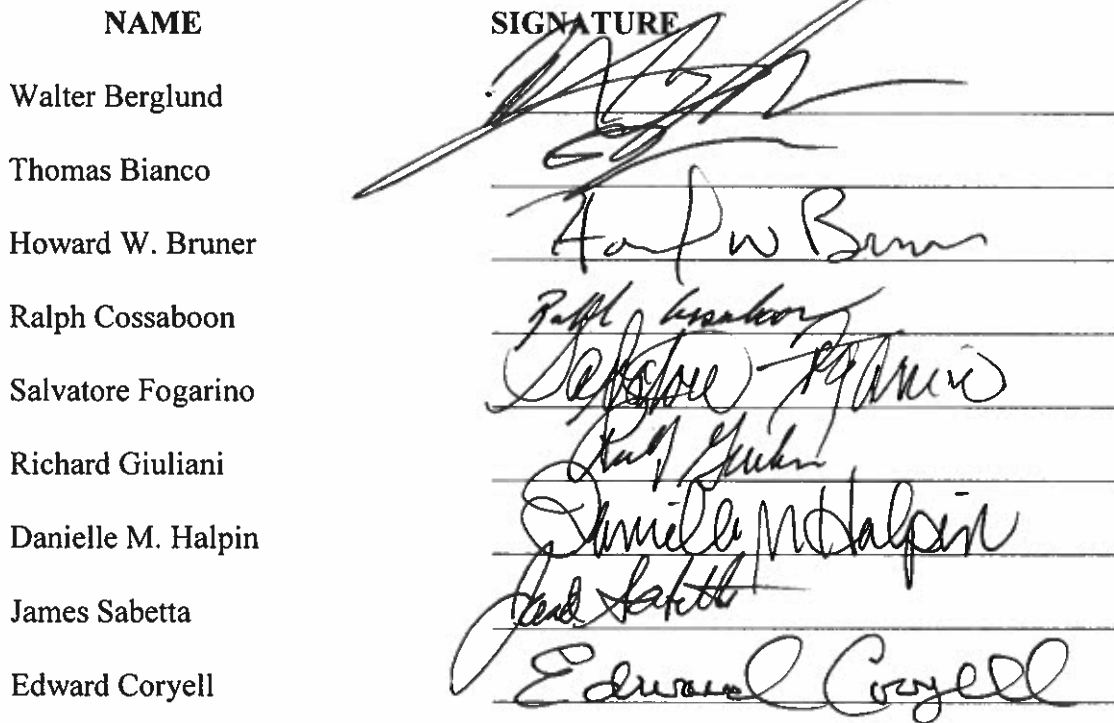 NAME SIGNATURE
Walter Berglund
Thomas Bianco
Howard W. Bruner Howard W Bruner
Ralph Cossaboon Ralph Cossaboon
Salvatore Fogarino Salvatore Fogarino
Richard Giuliani
Danielle M. Halpin Danielle M Halpin
James Sabetta James Sabetta
Edward Coryell Edward Coryell